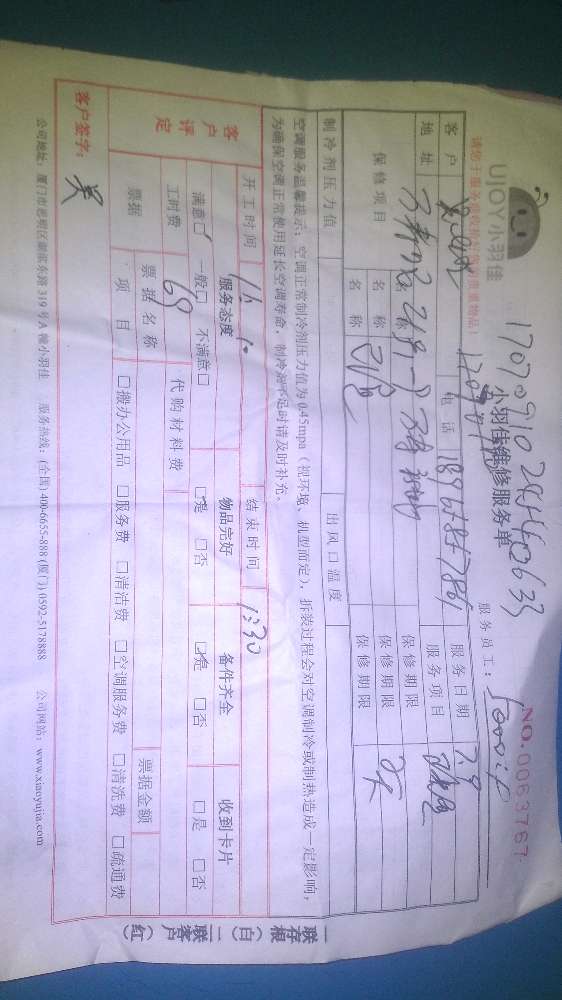 UJOY小羽佳
小羽佳维修服务单
NO. 0063767
请您于服务前收拾好您的贵重物品！
服务员工：
客户
电话
服务日期 7.9
地址
服务项目
保修项目
名称
保修期限
名称
保修期限
名称
保修期限
制冷剂压力值
出风口温度
空调服务温馨提示：空调正常制冷剂压力值为0.45mpa（视环境、机型而定），拆装过程会对空调制冷或制热造成一定影响，
为确保空调正常使用延长空调寿命，制冷剂不足时请及时补充。
开工时间
结束时间 1:30
客户评定
服务态度
物品完好
备件齐全
收到卡片
满意□ 一般□ 不满意□
□是 □否
□是 □否
□是 □否
工时费 69
代购材料费
票据
票据名称
票据金额
项目
□搬办公用品 □服务费 □清洁费 □空调服务费 □清洗费 □疏通费
客户签字： 吴
公司地址：厦门市思明区湖滨东路319号A幢小羽佳 服务热线：(全国) 400-6655-888 (厦门) 0592-5178888 公司网站：www.xiaoyujia.com
一联存根（白）二联客户（红）